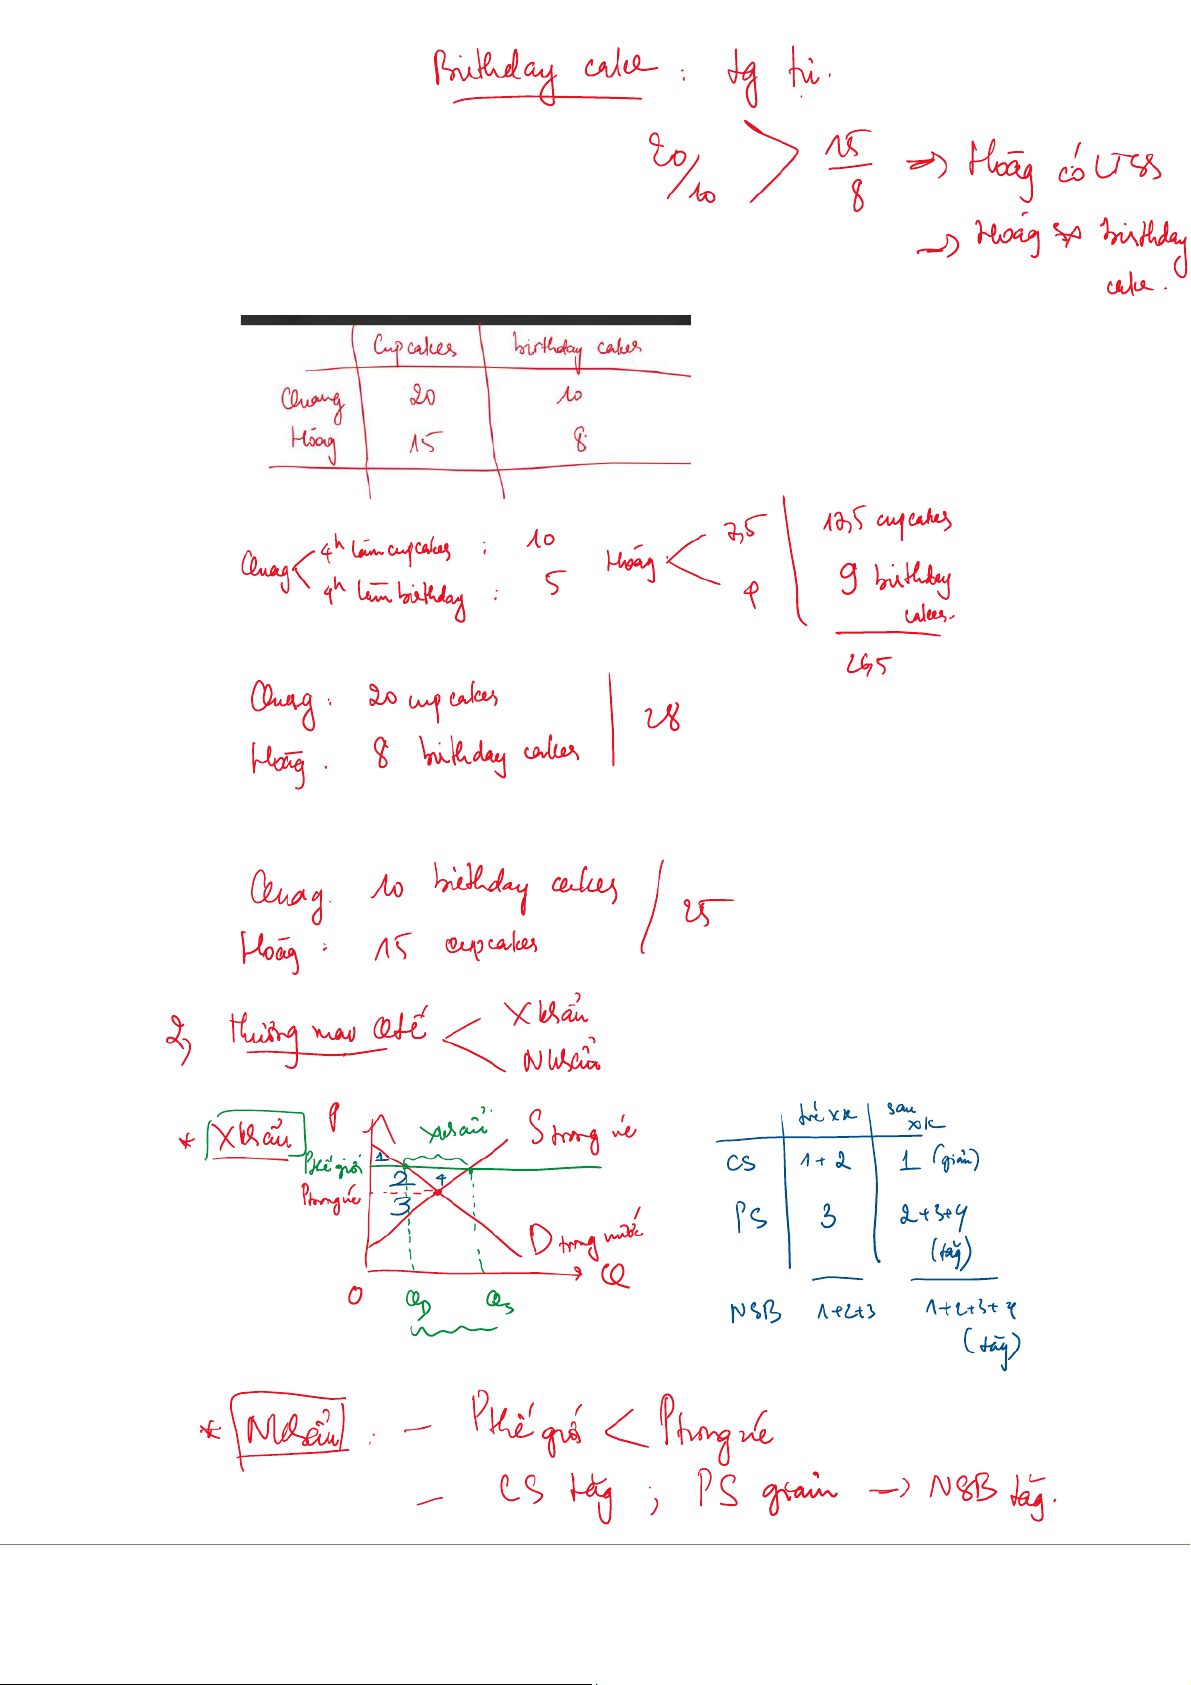 Birthday cake : tg tự.
20/10 > 15/8 → Hoàg có LTSS
→ Hoàg sx birthday
cake.
Cupcakes birthday cakes
Quang 20 10
Hoàg 15 8
Quag < 4h làm cupcakes : 10
4h làm birthday : 5
Hoàg < 7,5
4
17,5 cupcakes
9 birthday
cakes.
26,5
Quag : 20 cupcakes
Hoàg : 8 birthday cakes
28
Quag. 10 birthday cakes
Hoàg : 15 cupcakes
25
2, Thương mại Qtế < Xkhẩu
Nkhẩu
* Xkhẩu
P
xkhẩu
S trong nc
Pthế giới
Ptrong nc
1
2
3
4
D trong nước
O
Q
QD QS
trc xk sau xk
CS 1+2 1 (giảm)
PS 3 2+3+4
(tăg)
NSB 1+2+3 1+2+3+4
(tăg)
* Nkhẩu : – Pthế giới < Ptrong nc
– CS tăg ; PS giảm → NSB tăg.